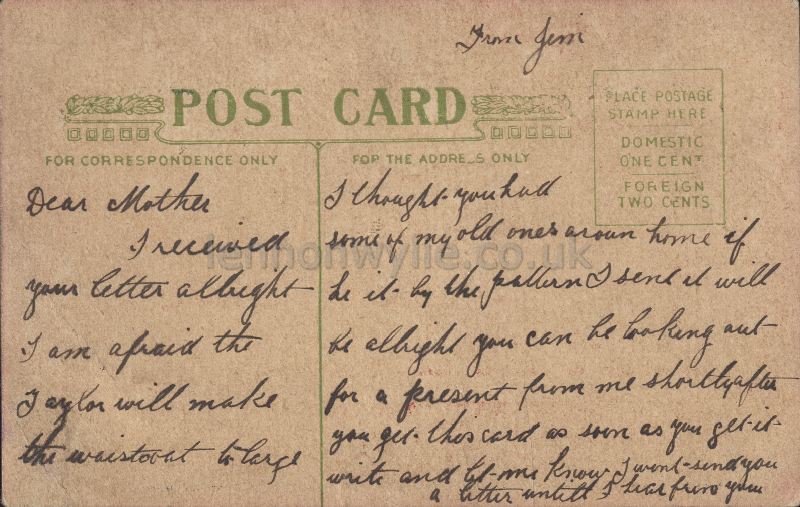 From Jim
POST CARD
PLACE POSTAGE
STAMP HERE
DOMESTIC
ONE CENT
FOREIGN
TWO CENTS
FOR CORRESPONDENCE ONLY
FOR THE ADDRESS ONLY
Dear Mother
I received
your letter allright
I am afraid the
Taylor will make
the waistcoat to large
I thought you had
some of my old ones aroun home if
he it by the pattern I send it will
be allright you can be looking out
for a present from me shortly after
you get this card as soon as you get it
write and let me know I wont send you
a letter untill I hear from you
lennonwylie.co.uk